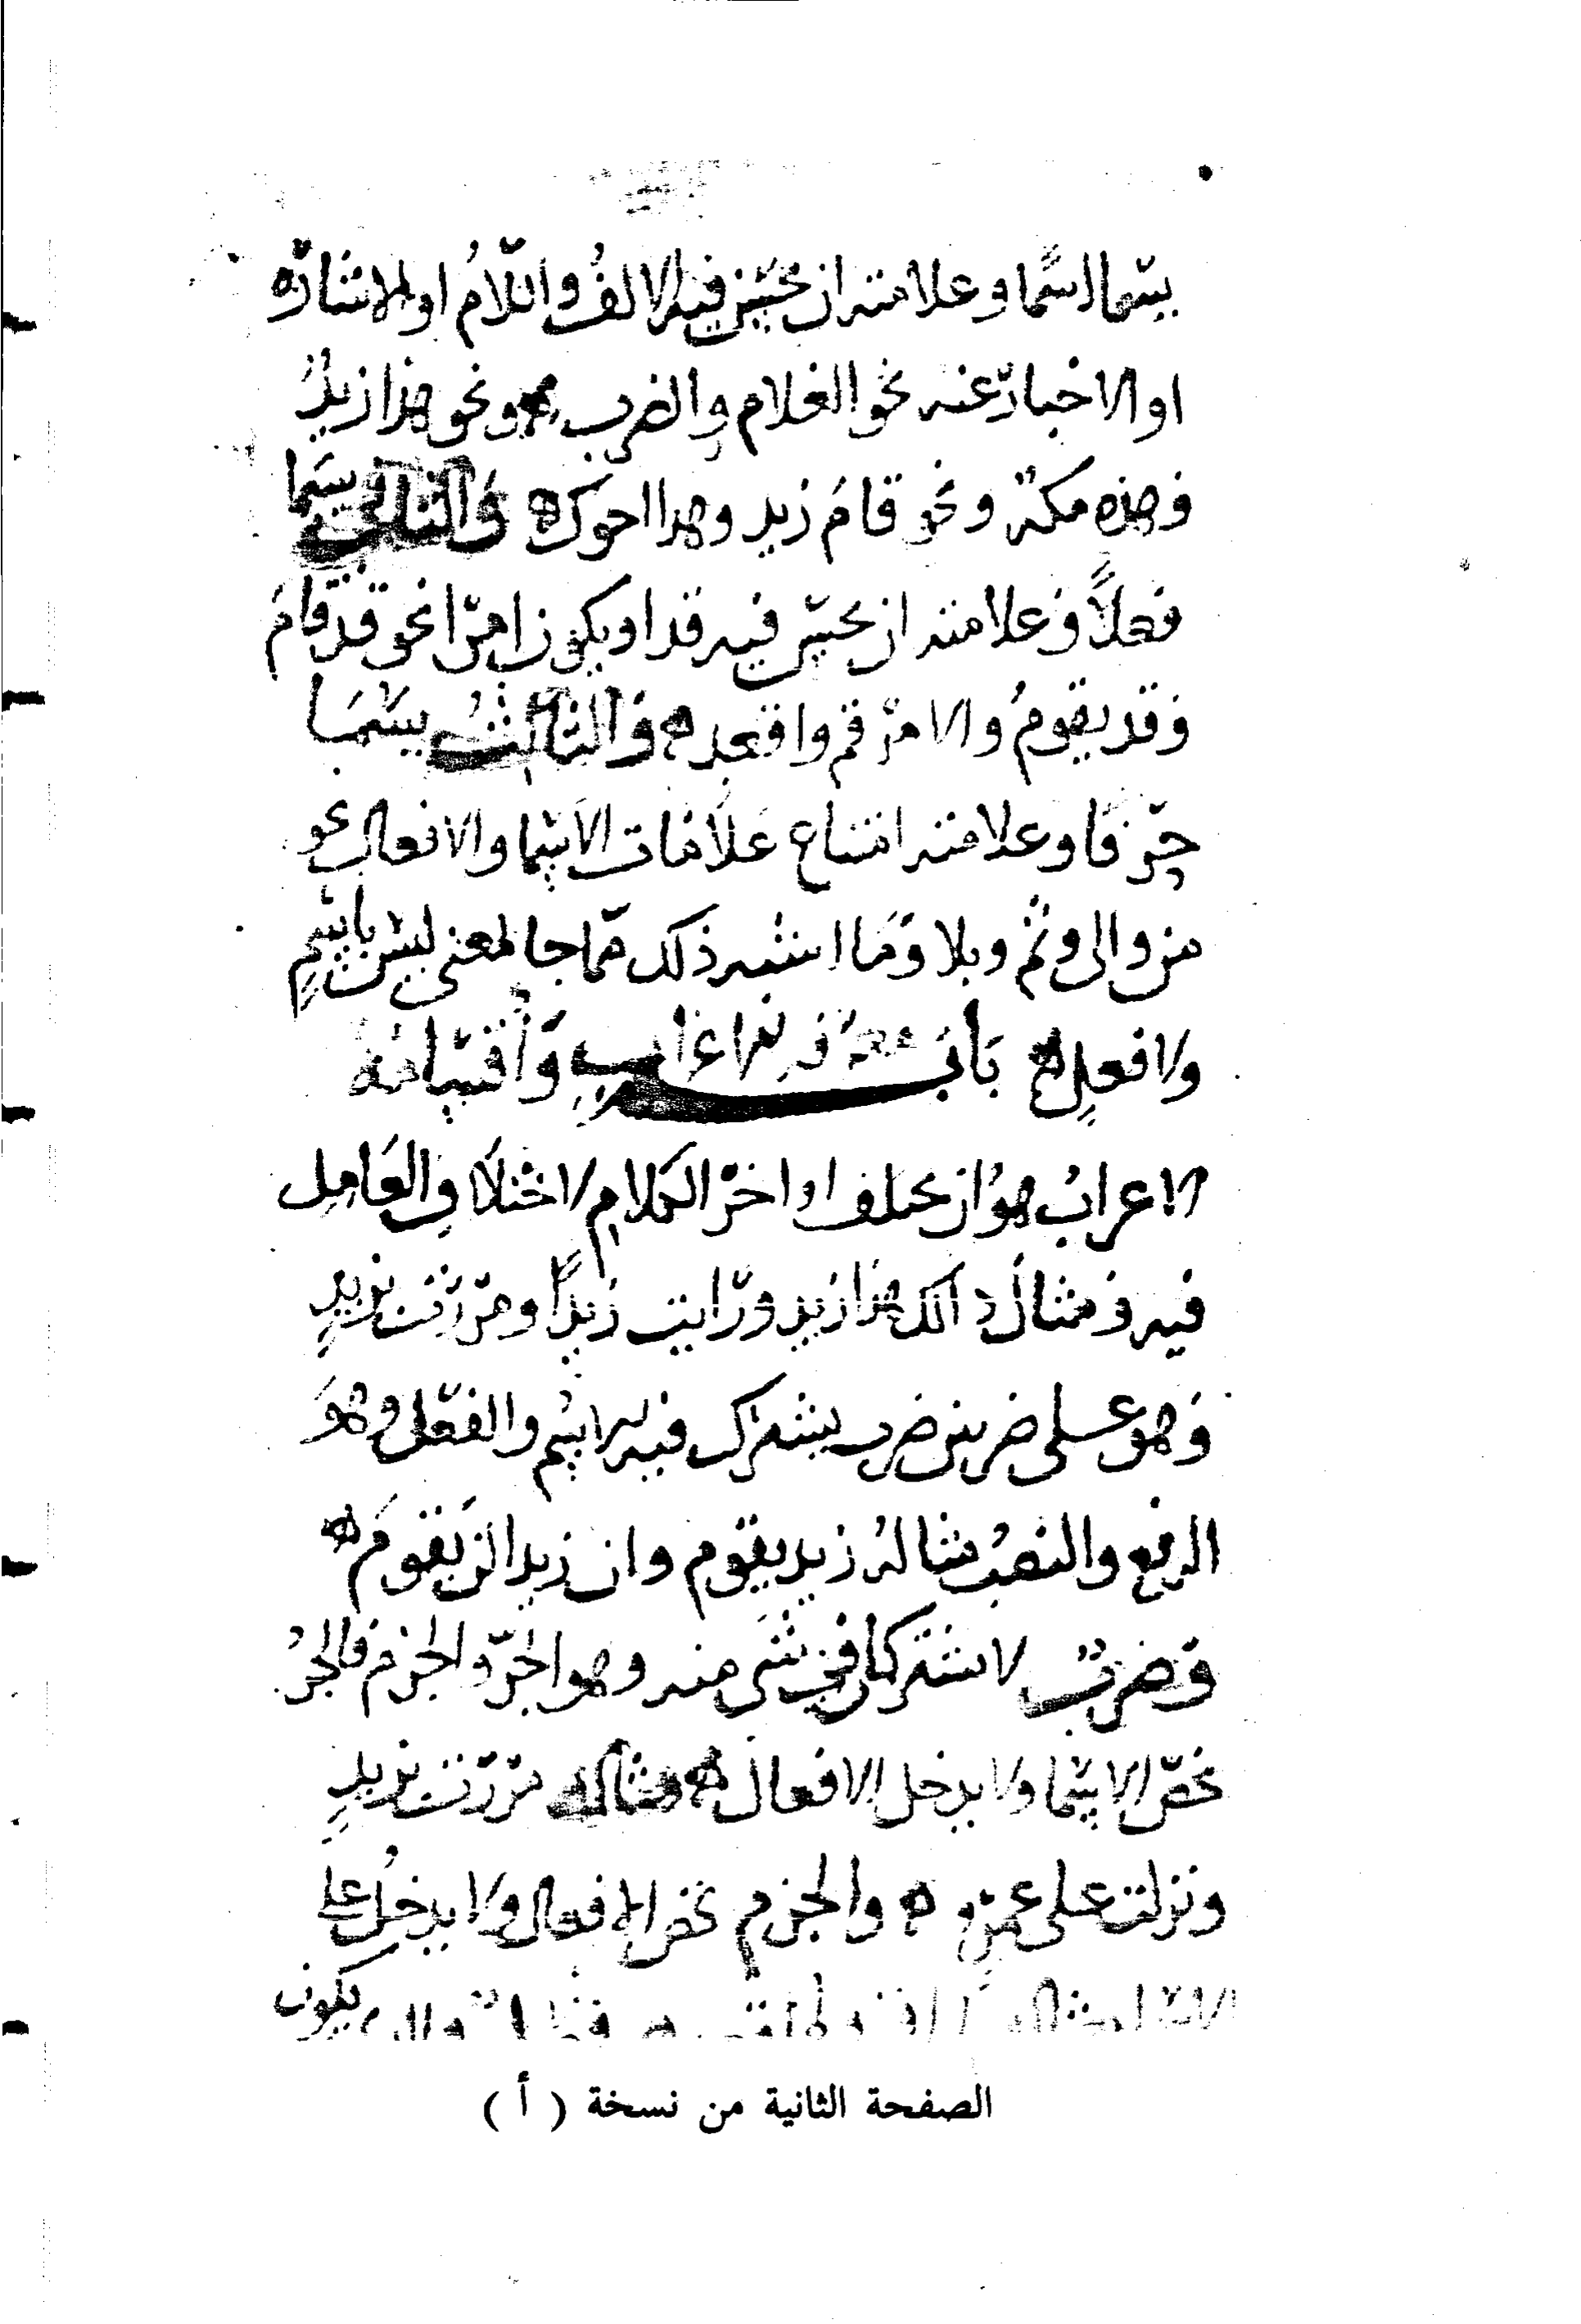 يسّما اسمًا وعلامته ان يحسن فيه الالفُ واللّامُ او الاشارة
او الاخبار عنه نحو الغلام والضرب ونحو هذا زيدٌ
وهذه مكة ونحو قامَ زيد وهذا اخوك ه والثاني يسَما
فعلاً وعلامته ان يحسن فيه قد او يكون امرًا نحو قد قامَ
وقد يقومُ والامر قم واقعد ه والثالث يسَمّا
حرفا وعلامته امتناع علامات الاسما والافعال نحو
من والى وثُم وبلا ومَا اشبه ذلك ممّا جا لمعنى ليس باسمٍ
ولا فعلٍ ه بابُ معرفة الاعراب وأقسامه
الاعرابُ هو ان يختلف اواخر الكلام لاختلاف العَامِل
فيه ومثال ذلك هذا زيد ورايت زيدًا ومررت بزيدٍ
وَهو على ضربين ضرب يشترك فيه الاسم والفعل وهوَ
الرفع والنصبُ مثاله زيد يقوم وان زيدا لن يقومَ ه
وضربٌ لا يشتركان في شى منه وهو الجرّ والجزم فالجرُ
يخصّ الاسما ولا يدخل الافعال ه مثاله مررت بزيدٍ
ونزلت على عمرٍو ه والجزم يخص الافعال ولا يدخلُ على
يكون
الصفحة الثانية من نسخة ( أ )